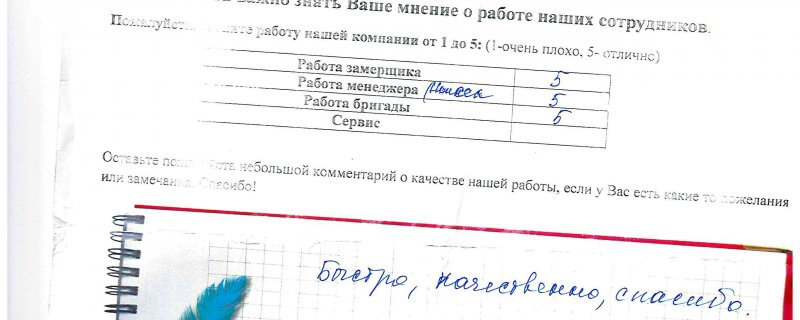 важно знать Ваше мнение о работе наших сотрудников.
работу нашей компании от 1 до 5: (1-очень плохо, 5- отлично)
Работа замерщика 5
Работа менеджера 5
Работа бригады 5
Сервис
Оставьте небольшой комментарий о качестве нашей работы, если у Вас есть какие то пожелания
или замечания. Спасибо!
Быстро, качественно, спасибо.